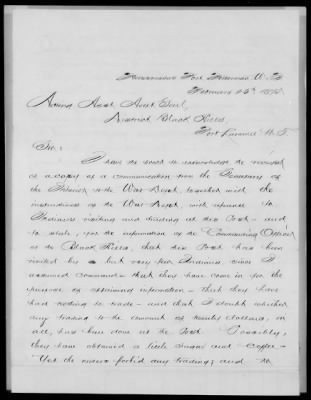 Headquarters Fort Fetterman W.T.
February 26th 1875
Acting Asst Adjt Genl,
District Black Hills,
Fort Laramie W.T.
Sir:
I have the honor to acknowledge the receipt
of a copy of a communication from the Secretary of
the Interior to the War Dept, together with the
instructions of the War Dept with reference to
Indians visiting and trading at this Post - and
to state, for the information of the Commanding Officer
of the Black Hills, that this Post has been
visited by a but very few Indians since I
assumed command - that they have come in for the
purpose of obtaining information - that they have
had nothing to trade - and that I doubt whether
any trading to the amount of twenty dollars, in
all, has been done at the Post. Possibly,
they have obtained a little sugar and coffee -
Yet the orders forbid any trading; and no